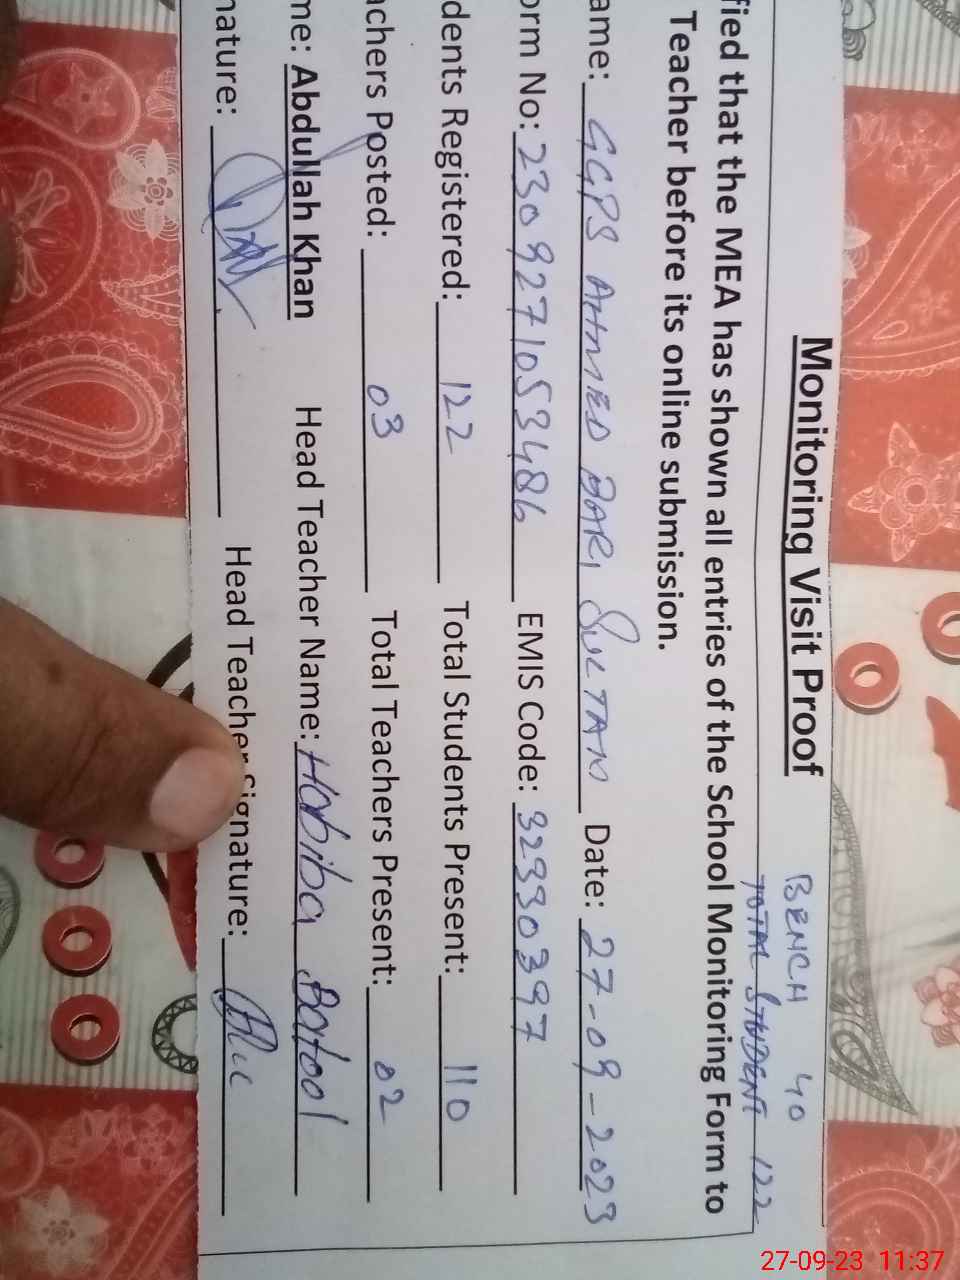 Monitoring Visit Proof
BENCH 40
TOTAL STUDENT 122
fied that the MEA has shown all entries of the School Monitoring Form to
Teacher before its online submission.
ame: GGPS AHMED BARI SULTAN Date: 27-09-2023
orm No: 2309271053486 EMIS Code: 32330397
dents Registered: 122 Total Students Present: 110
achers Posted: 03 Total Teachers Present: 02
me: Abdullah Khan Head Teacher Name: Habiba Batool
nature: Head Teacher Signature:
27-09-23 11:37